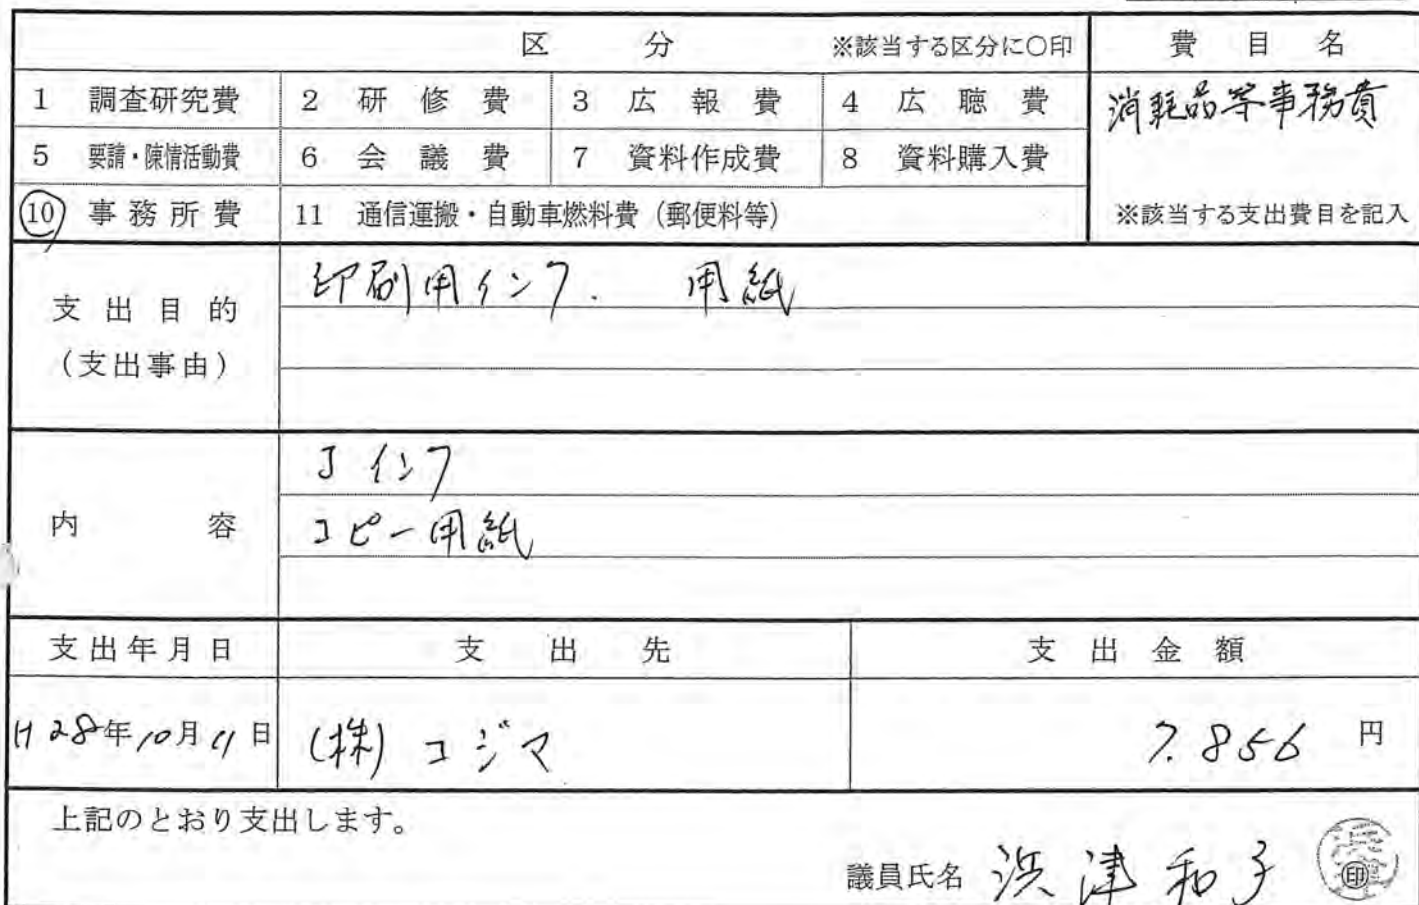 区分 ※該当する区分に○印 費目名
1 調査研究費 2 研修費 3 広報費 4 広聴費 消耗品等事務費
5 要請・陳情活動費 6 会議費 7 資料作成費 8 資料購入費
10 事務所費 11 通信運搬・自動車燃料費（郵便料等） ※該当する支出費目を記入
支出目的
（支出事由）
印刷用インク. 用紙
内容
インク
コピー用紙
支出年月日 支出先 支出金額
H28年10月11日 (株)コジマ 7.856円
上記のとおり支出します。
議員氏名 浜津和子 印